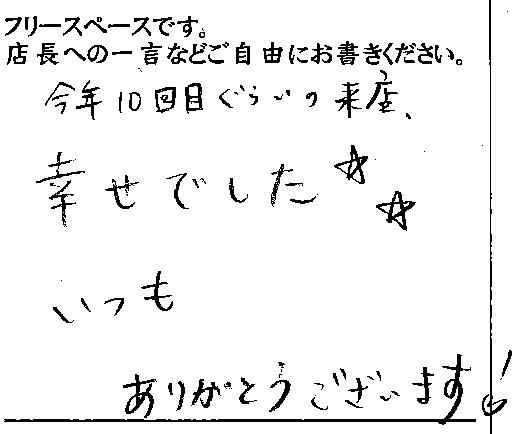 フリースペースです。
店長への一言などご自由にお書きください。
今年10回目ぐらいの来店、
幸せでした☆☆
いつも
ありがとうございます!